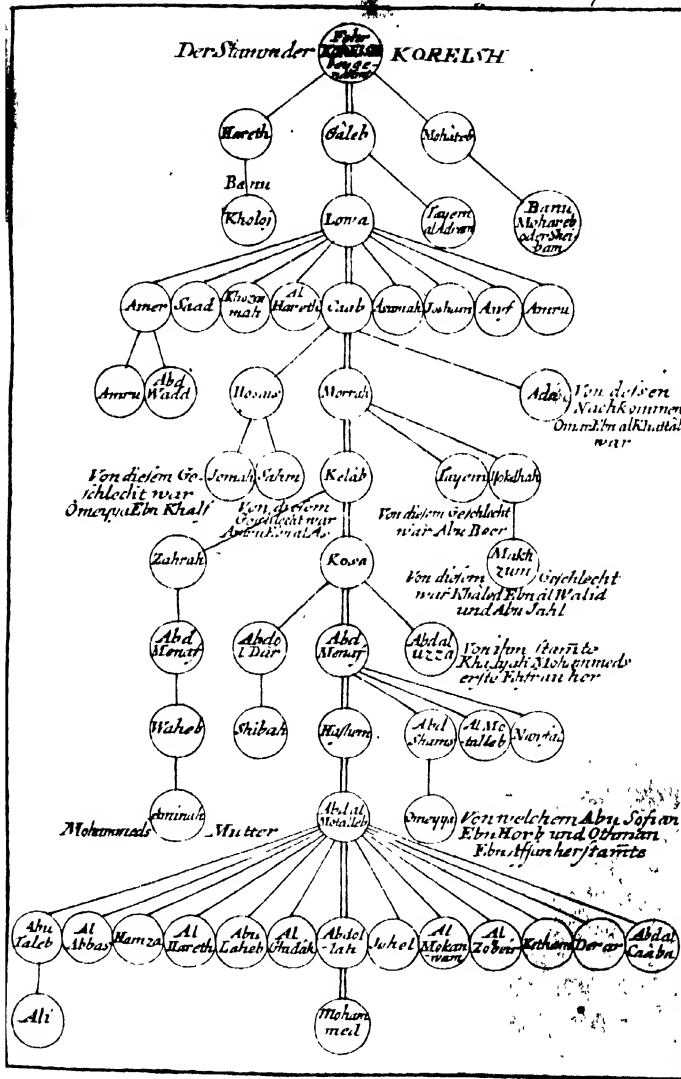 Der Stamm der KORELSH
Fehr
KORELSH
beyge-
nahmt
Hareth
Galeb
Mohareb
Banu
Kholoj
Lowa
Tayem
al Adram
Banu
Mohareb
oder Shei-
bam
Amer
Saad
Khozai
mah
Al
Hareth
Caab
Asamah
Josham
Amru
Amru
Abd
Wadd
Hosais
Morrah
Adi
Von dessen
Nachkommen
Omar Ebn al Khattab
war
Jomah
Sahm
Kelab
Tayem
Von diesem Ge-
schlecht war
Omeyya Ebn Khalf
Von diesem
Geschlecht war
Amru Ebn al As
Von diesem Geschlecht
war Abu Becr
Zahrah
Kosa
Makh
zum
Von diesem Geschlecht
war Khaled Ebn al Walid
und Abu Jahl
Abd
Menaf
Abdo
l Dar
Abd
Menaf
Abdal
uzza
Von ihm stam̃te
Khadijah Mohammeds
erste Ehfrau her
Waheb
Shibah
Hashem
Abd
Shams
Al Mo-
talleb
Nawfal
Mohammeds
Aminah
Mutter
Abdal
Motalleb
Omeyya
Von welchem Abu Sofian
Ebn Horb und Othman
Ebn Affan herstam̃te
Abu
Taleb
Al
Abbas
Hamza
Al
Hareth
Abu
Laheb
Al
Gidak
Abdol
-lah
Johel
Al
Mokaw
wam
Al
Zobeir
Ketham
Derar
Abdal
Caaba
Ali
Moham
med